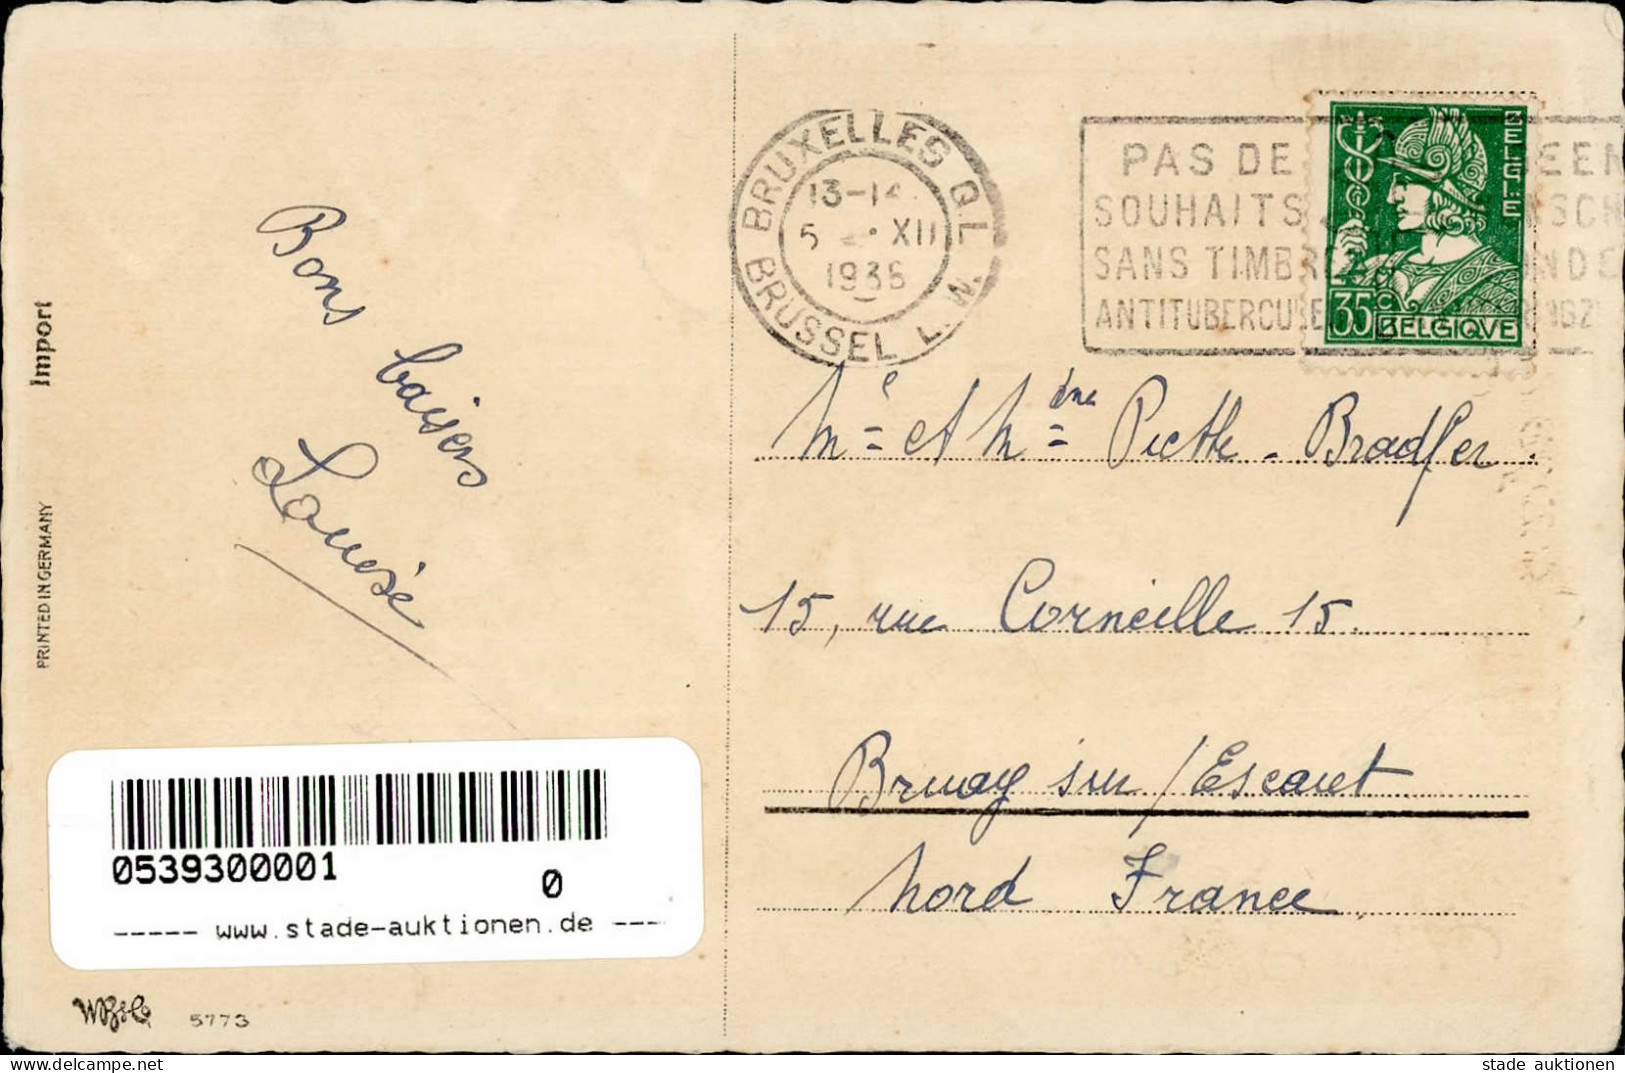 Import
PRINTED IN GERMANY
Bons
baisers
Louise
BRUXELLES Q.L.
13-14
5 XII
1935
BRUSSEL L.W.
PAS DE GEEN
SOUHAITS WENSCH
SANS TIMBRE
ANTITUBERCULEUX
BELGIË
35 C
BELGIQVE
Mr et Mdme Piette - Bradfer.
15, rue Corneille 15.
Bruay sur/Escaut
Nord France
0539300001
0
----- www.stade-auktionen.de ----
W.B.&Co.
5773
stade auktionen